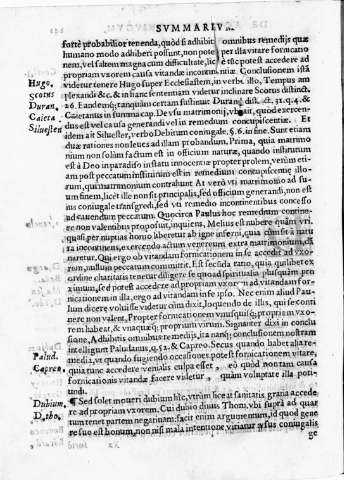 SVMMARIVM
fortè probabilior tenenda, quòd si adhibitis omnibus remedijs quæ
humano modo adhiberi possunt, non potest per illa vitare fornicationem,
vel saltem magna cum difficultate, licitè potest accedere ad
propriam vxorem causa vitandæ incontinentiæ. Conclusionem istã
Hugo, videtur tenere Hugo super Ecclesiastem, in verbi. illo, Tempus am
scotus plexandi &c. & in hanc sententiam videtur inclinare Scotus distinct.
Duran. 26. Eandem; tanquàm certam sustinuit Durang. dist. 31. q. 4. &
Caieta. Caietanus in summa cap. De vsu matrimonij,
Siluester dus est vel causa generandi vel in remedium concupiscentiæ. Et
idem ait Siluester, verbo Debitum coniugale. §. 6. in fine. Sunt etiam
duæ rationes non leues ad illam probandum, Prima, quia matrimonium
non solùm factum est in officium naturæ, quando institutum
est à Deo in paradiso in statu innocentiæ propter prolem, verùm etiam
post peccatum institutum est in remedium concupiscentiæ illorum,
qui matrimonium contrahunt. At verò vti matrimonio ad suum
finem, licèt ille non sit principalis, sed officium generandi, non est
ius coniugale transgredi, sed vti remedio incontinentibus concesso
ad cauendum peccatum. Quocirca Paulus hoc remedium continere
non valentibus proposuit, inquiens, Melius est nubere quàm vri,
quasi per nuptias homo liberetur ab igne inferni, quia
incontinens, exercendo actum venereum extra matrimonium,
naretur. Qui ergo ob vitandam fornicationem in se accedit ad vxorem,
nullum peccatum committit. Est secunda ratio, quia, quilibet ex
ordine charitatis tenetur diligere se quoad spiritualia plusquàm proximum,
sed potest accedere ad propriam vxorem ad vitandam fornicationem
in illa, ergo ad vitandam in se ipso. Nec enim aliud Paulum
dicere voluisse videtur cùm dixit, loquendo de illis, qui se continere
non valent, Propter fornicationem vnusquisq; propriam vxorem
habeat, & vnaquæq; proprium virum. Signanter dixi in conclusione,
Adhibitis omnibus remedijs, ita
Palud. intelligunt Paludanus, q. 52. & Capreo. Secus quando habet alia remedia,
Capreo. vt quando fugiendo occasiones potest fornicationem vitare,
quia tunc accedere venialis culpa esset, eò quòd non tam causa
fornicationis vitandæ facere videtur, quàm voluptate illa potitundi.
Dubium. ¶ Sed solet moueri dubium hîc, vtrùm liceat sanitatis gratia accedere
D. Tho. ad propriam vxorem. Cui dubio diuus Thom. vbi suprà ad quartum
tenet partem negantem: facit enim argumentum, id quod genere
suo est bonum, non nisi mala intentione vitiatur vsus coniugalis
ge